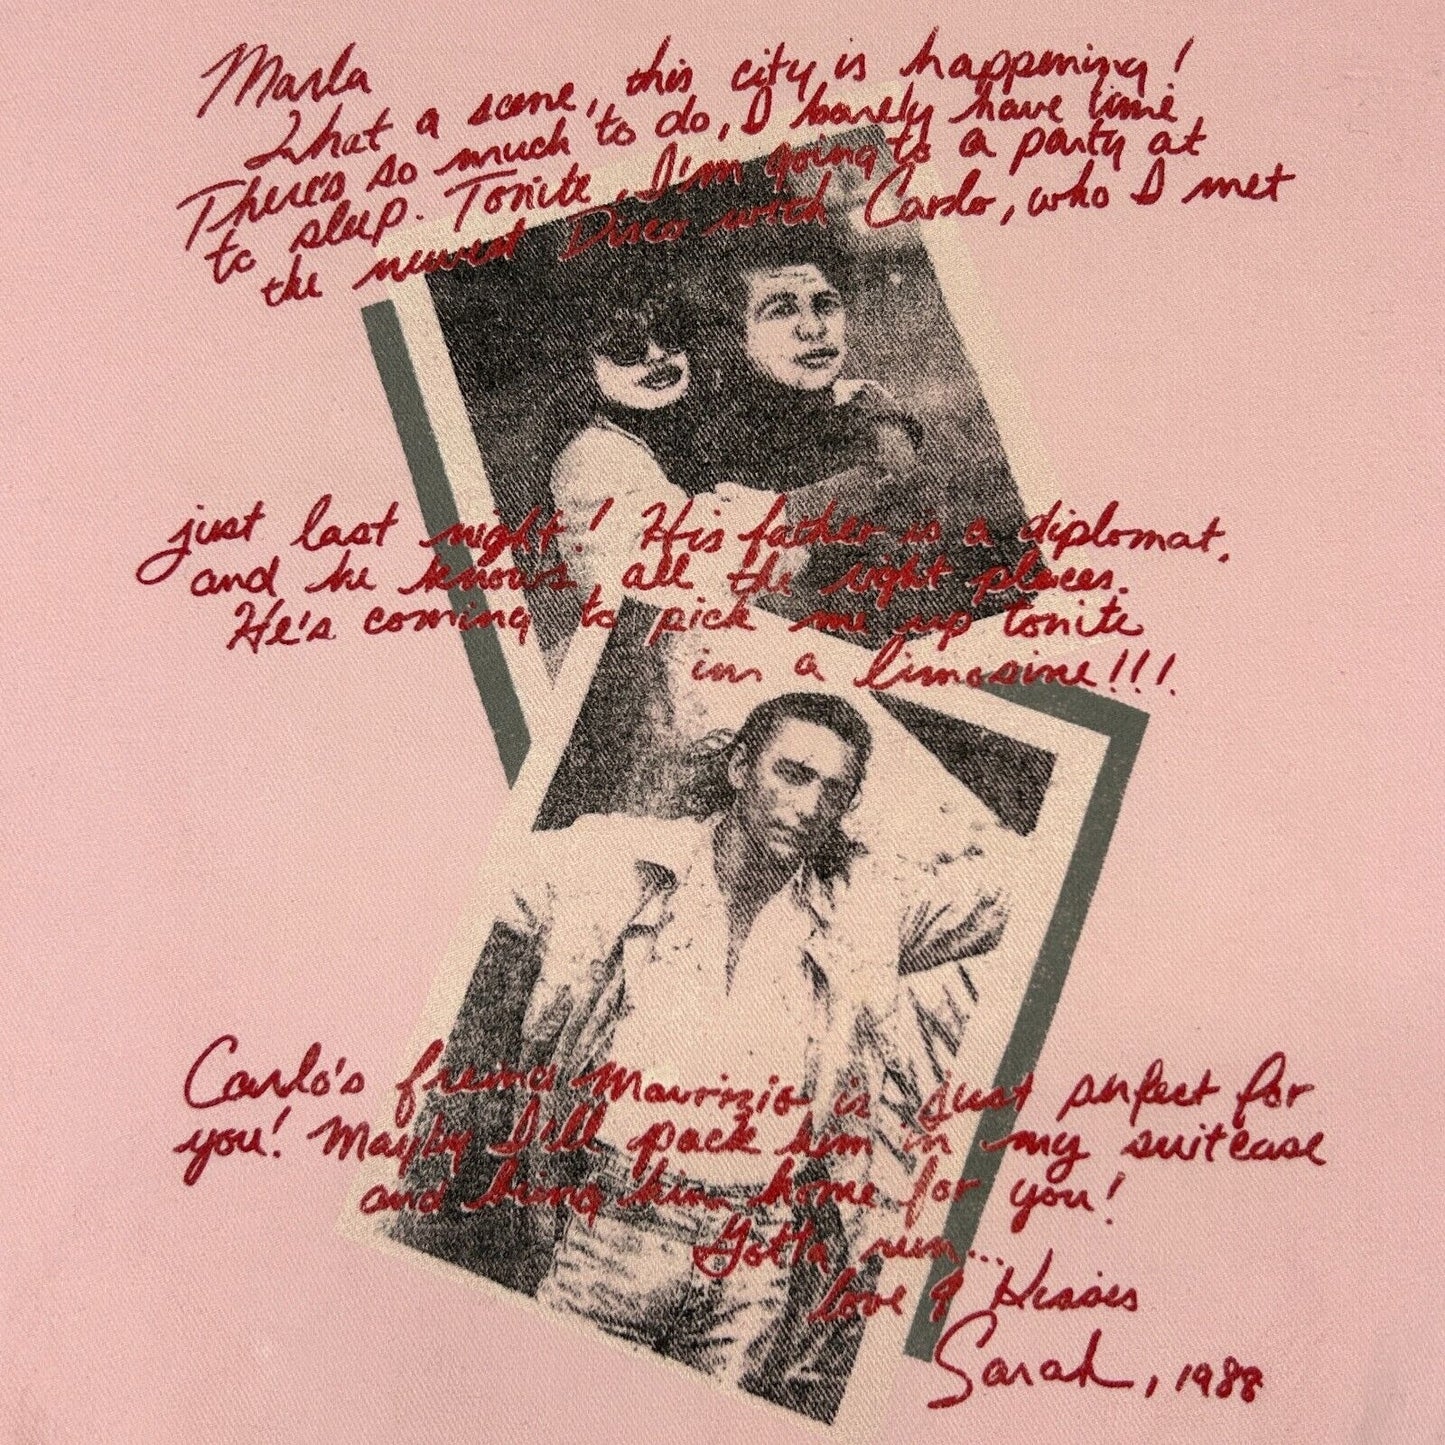 Marla
What a scene, this city is happening!
There's so much to do, I barely have time
to sleep. Tonite, I'm going to a party at
the newest Disco with Carlo, who I met
just last night! His father is a diplomat,
and he knows all the right places.
He's coming to pick me up tonite
in a limosine!!!
Carlo's freind Maurizio is just perfect for
you! Mayby I'll pack him in my suitcase
and bring him home for you!
Gotta run...
Love & Kisses
Sarah, 1988